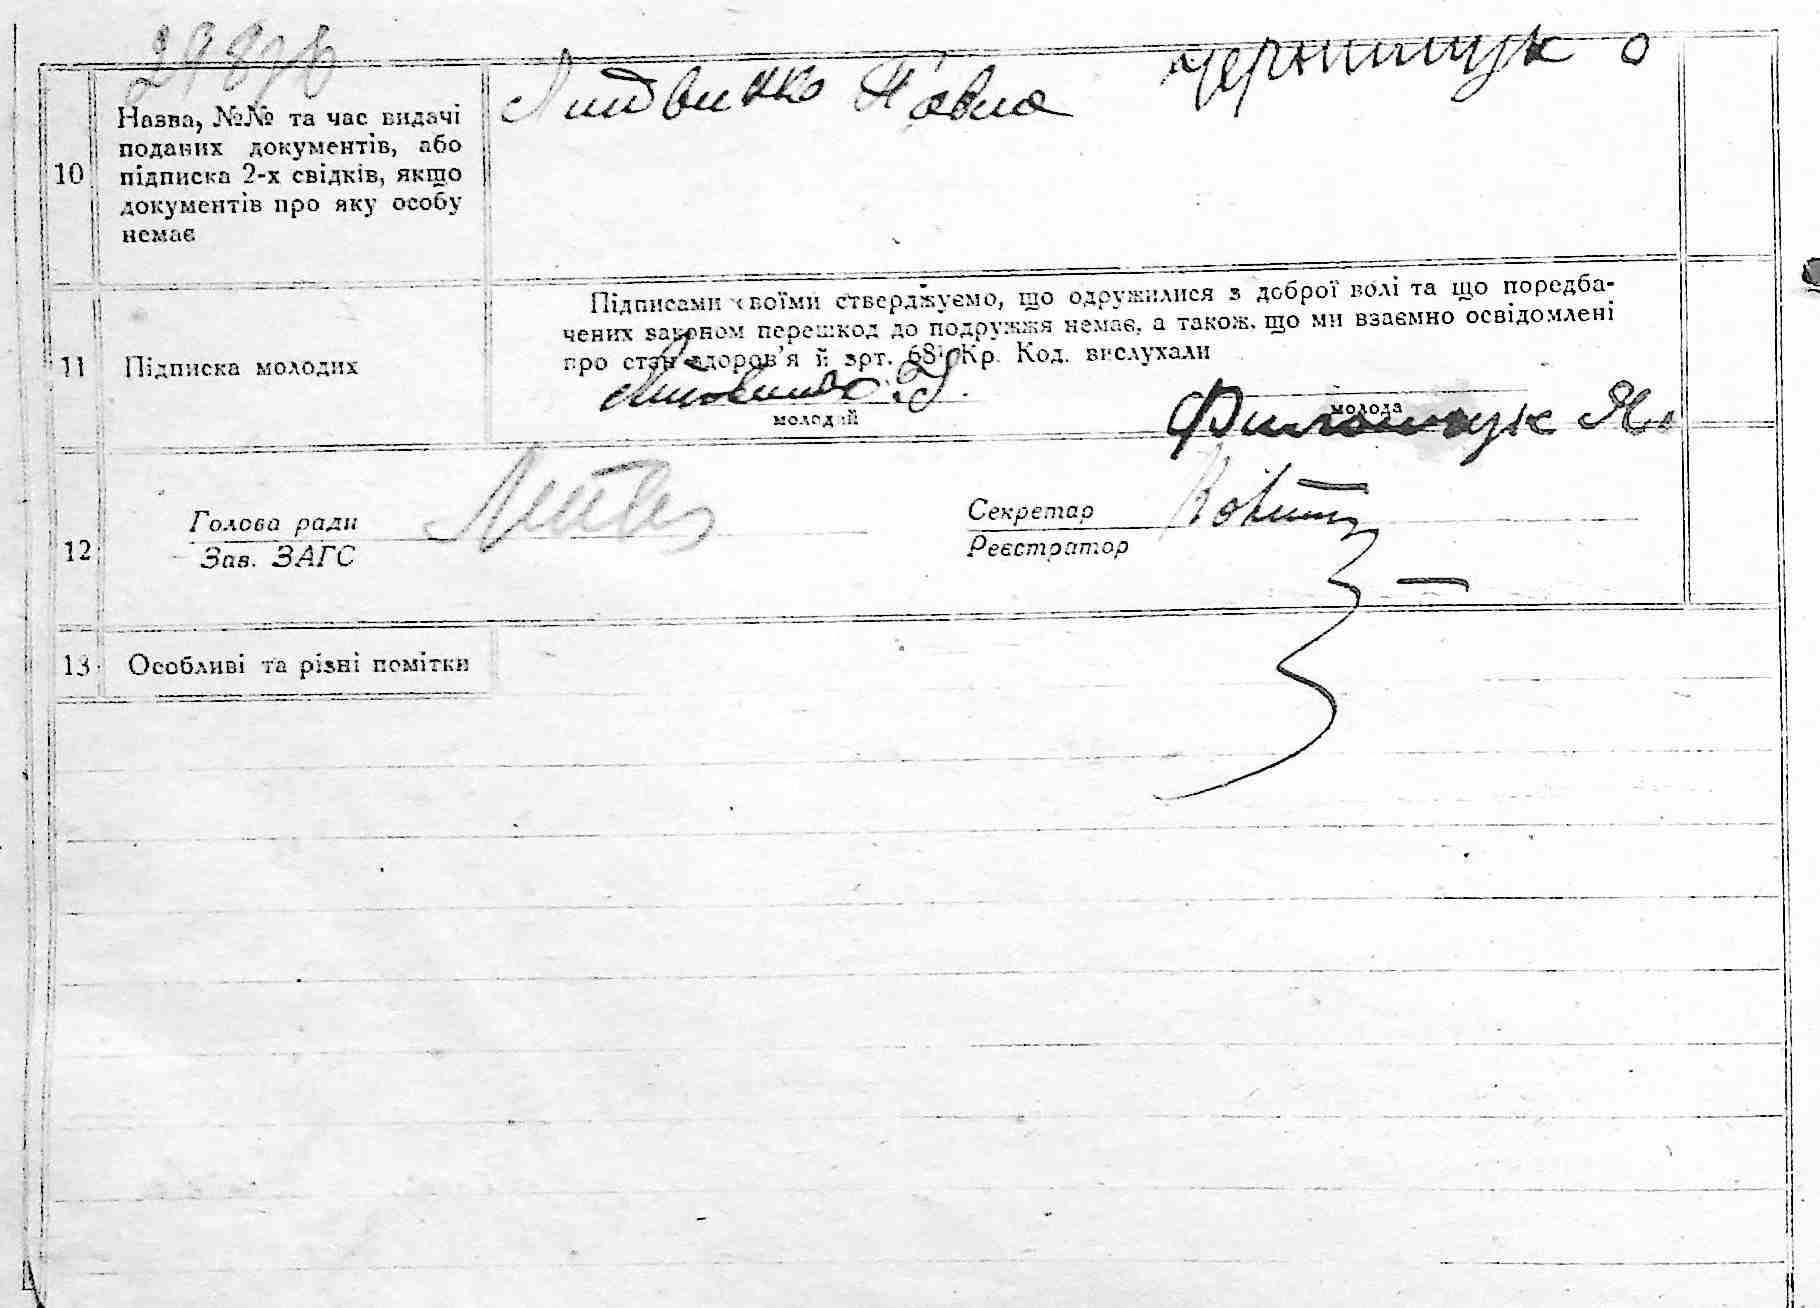 Литвинко Павло Чернищук О
10 Назва, №№ та час видачі
поданих документів, або
підписка 2-х свідків, якщо
документів про яку особу
немає
Підписами своїми стверджуємо, що одружилися з доброї волі та що передба-
чених законом перешкод до подружжя немає, а також, що ми взаємно освідомлені
про стан здоров'я й арт. 68¹ Кр. Код. вислухали
11 Підписка молодих
молодий
молода
Филошук Я.
Голова ради
Секретар
12
Зав. ЗАГС
Реєстратор
13 Особливі та різні помітки